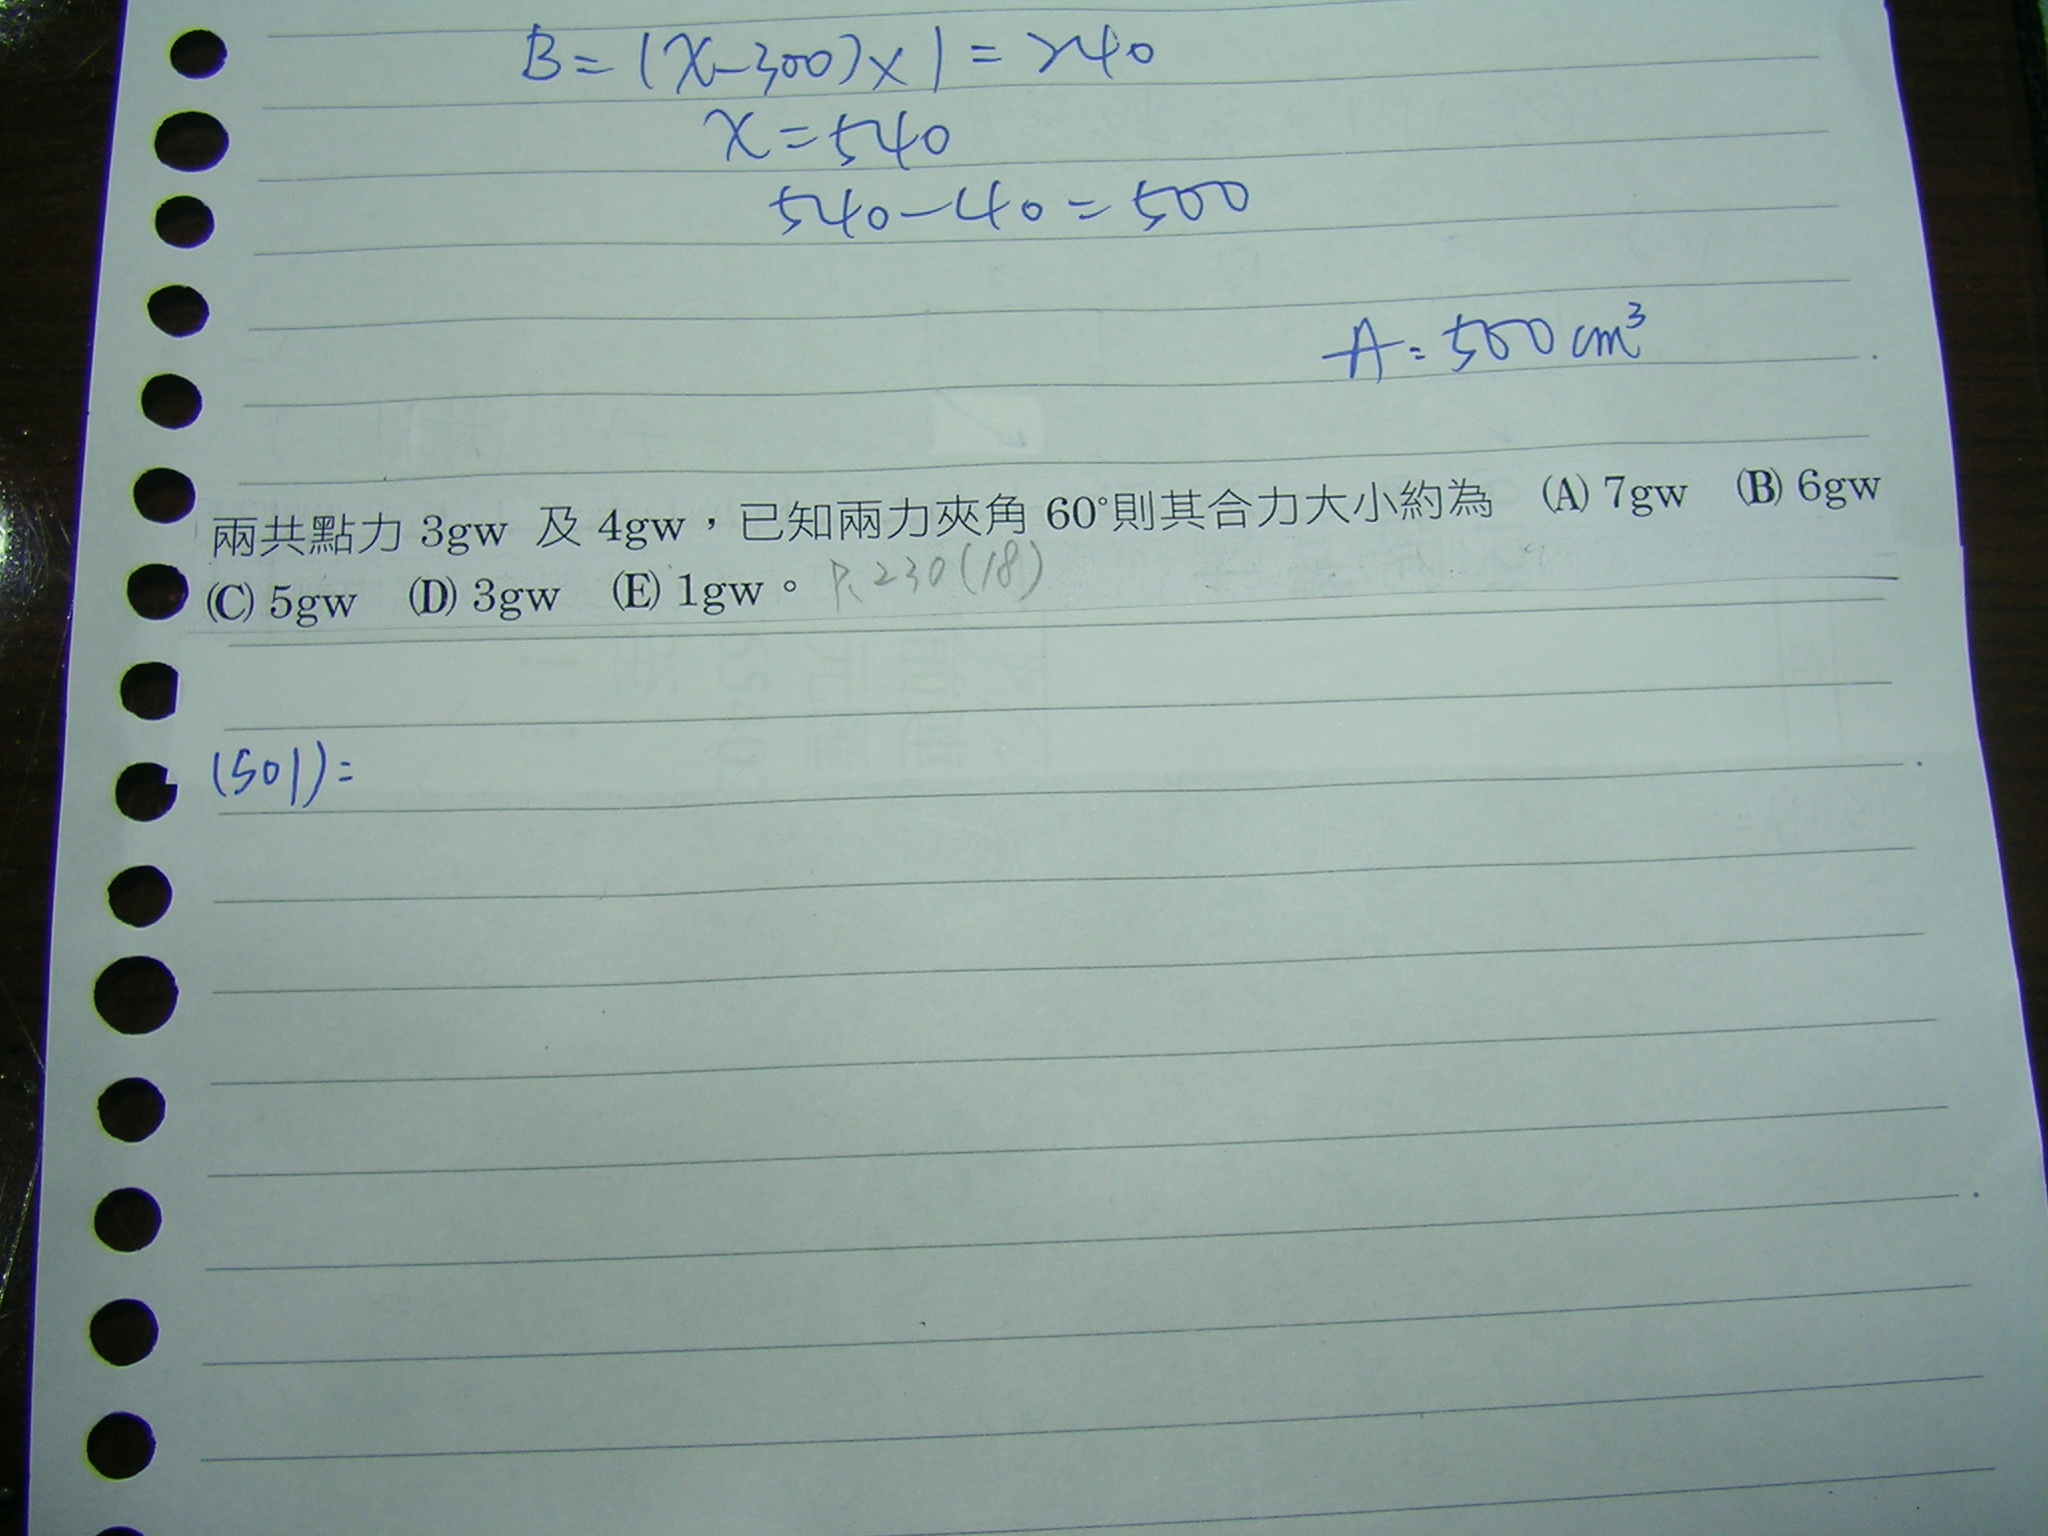 B=(x-300)x1=240
x=540
540-40=500
A=500cm³
兩共點力 3gw 及 4gw，已知兩力夾角 60°則其合力大小約為 (A) 7gw (B) 6gw
(C) 5gw (D) 3gw (E) 1gw。 P.230(18)
(sol)=